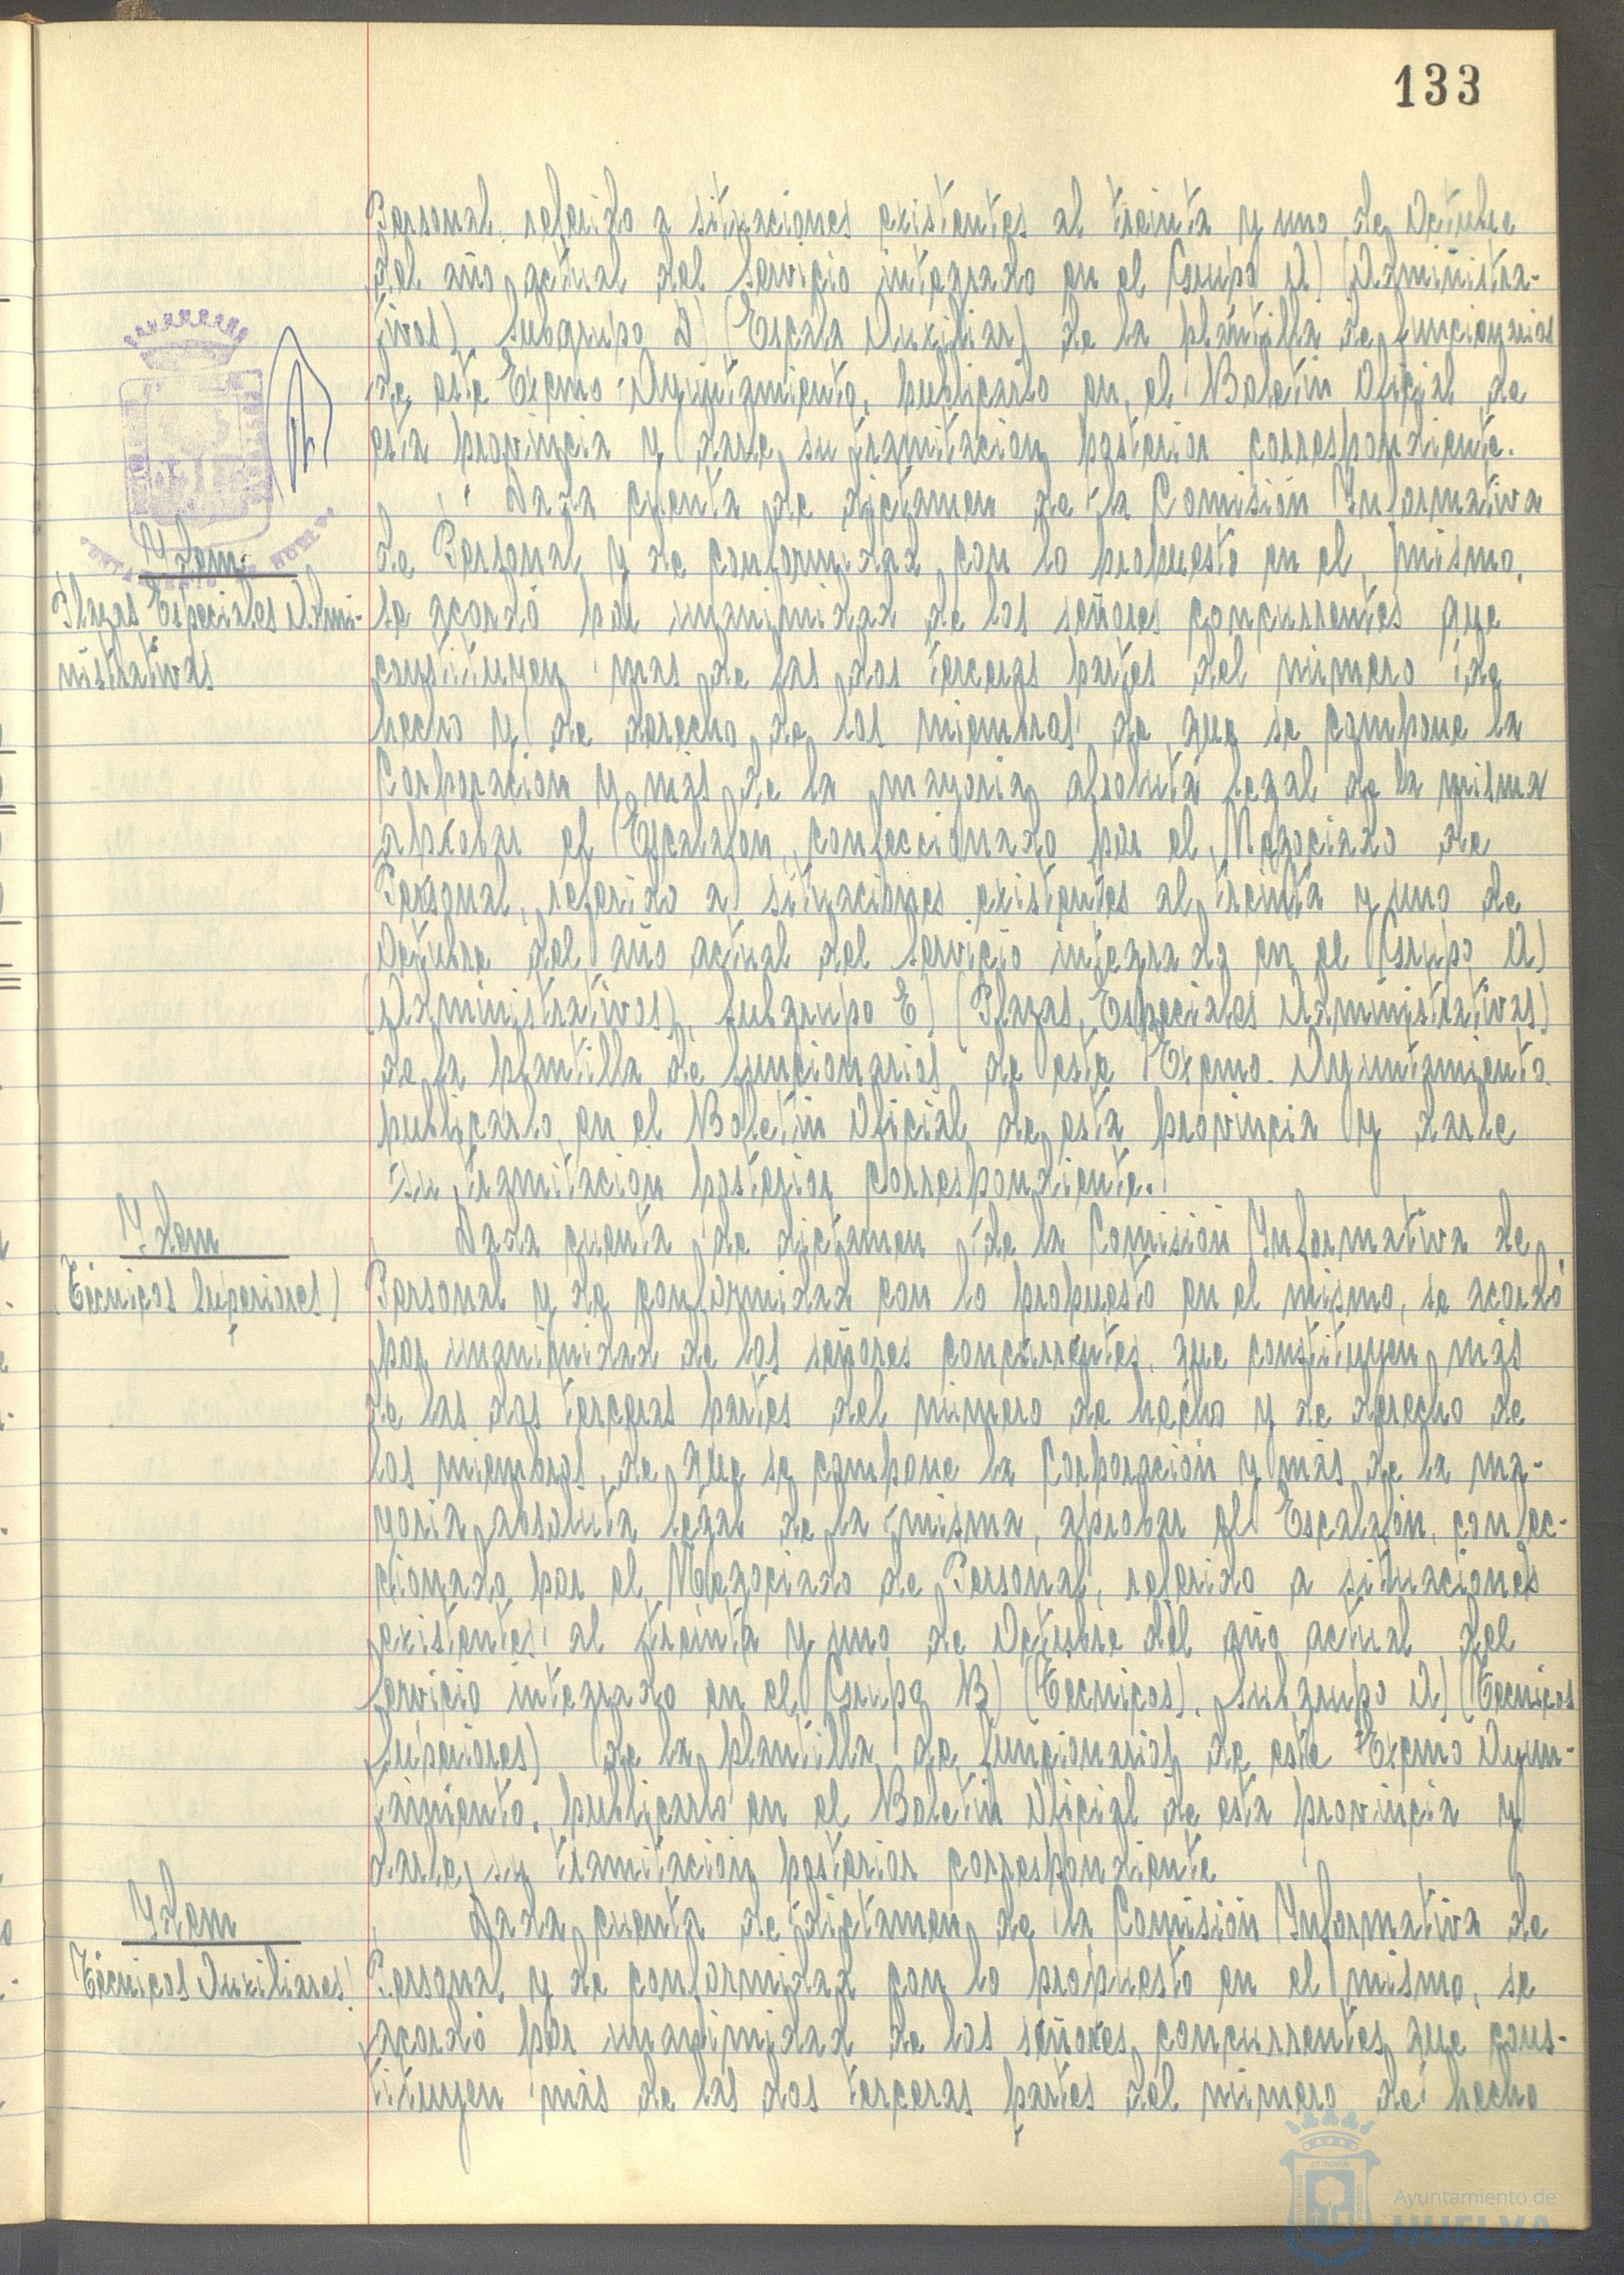 133
Personal, referido a situaciones existentes al treinta y uno de Octubre
del año actual del Servicio integrado en el Grupo A) (Administra-
tivos), Subgrupo D) (Escala Auxiliar) de la plantilla de funcionarios
de este Excmo. Ayuntamiento, publicarlo en el Boletín Oficial de
esta provincia y darle su tramitación posterior correspondiente.
Idem.
Plazas Especiales Admi-
nistrativas
Dada cuenta de dictamen de la Comisión Informativa
de Personal y de conformidad con lo propuesto en el mismo,
se acordó por unanimidad de los señores concurrentes que
constituyen mas de las dos terceras partes del número de
hecho y de derecho de los miembros de que se compone la
Corporación y más de la mayoria absoluta legal de la misma
aprobar el Escalafón, confeccionado por el Negociado de
Personal, referido a situaciones existentes al treinta y uno de
Octubre del año actual del Servicio integrado en el Grupo A)
(Administrativos), Subgrupo E) (Plazas Especiales Administrativas)
de la plantilla de funcionarios de este Excmo. Ayuntamiento.
publicarlo en el Boletín Oficial de esta provincia y darle
su tramitación posterior correspondiente.
Idem
Técnicos Superiores)
Dada cuenta de dictamen de la Comisión Informativa de
Personal y de conformidad con lo propuesto en el mismo, se acordó
por unanimidad de los señores concurrentes, que constituyen más
de las dos terceras partes del número de hecho y de derecho de
los miembros, de que se compone la Corporación y más de la ma-
yoria absoluta legal de la misma, aprobar el Escalafón, confec-
cionado por el Negociado de Personal, referido a situaciones
existentes al treinta y uno de Octubre del año actual del
Servicio integrado en el Grupo B) (Técnicos), Subgrupo A) (Técnicos
Superiores) de la plantilla de funcionarios de este Excmo Ayun-
tamiento, publicarlo en el Boletín Oficial de esta provincia y
darle su tramitación posterior correspondiente
Idem
Técnicos Auxiliares)
Dada cuenta de dictamen de la Comisión Informativa de
Personal y de conformidad con lo propuesto en el mismo, se
acordó por unanimidad de los señores concurrentes que cons-
tituyen más de las dos terceras partes del número de hecho
Ayuntamiento de
HUELVA